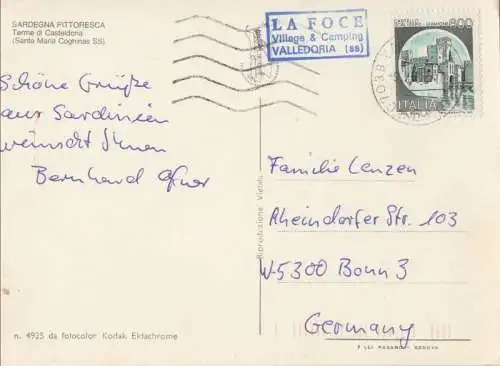 SARDEGNA PITTORESCA
Terme di Casteldoria
(Santa Maria Coghinas SS)
LA FOCE
Village & Camping
VALLEDORIA (ss)
800
ITALIA
Schöne Grüße
aus Sardinien
wünscht Ihnen
Bernhard
Familie Lenzen
Rheindorfer Str. 103
W-5300 Bonn 3
Germany
Riproduzione Vietata
n. 4925 da fotocolor Kodak Ektachrome